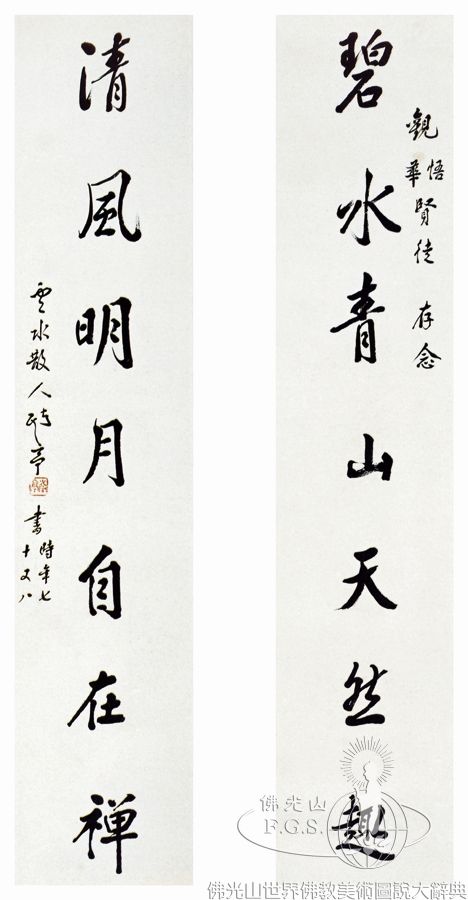 觀悟華賢徒 存念
碧水青山天然趣
清風明月自在禪
雲水散人
亭
書時年七十又八
佛光山
F.G.S.
佛光山世界佛教美術圖說大辭典